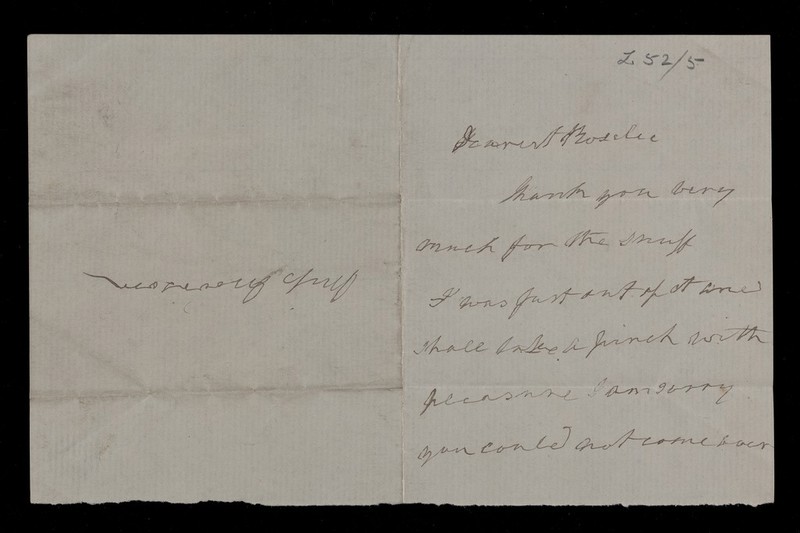 L 52/5
Dearest Rosalie
Thank you very
much for the snuff
I was just out of it and
shall take a pinch with
pleasure I am sorry
you could not come over